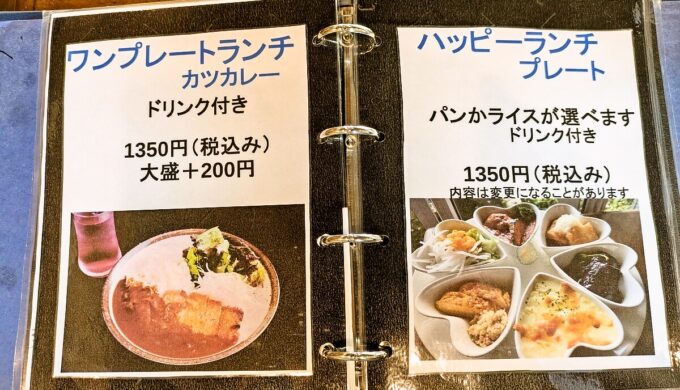 ワンプレートランチ
カツカレー
ドリンク付き
1350円（税込み）
大盛＋200円
ハッピーランチ
プレート
パンかライスが選べます
ドリンク付き
1350円（税込み）
内容は変更になることがあります